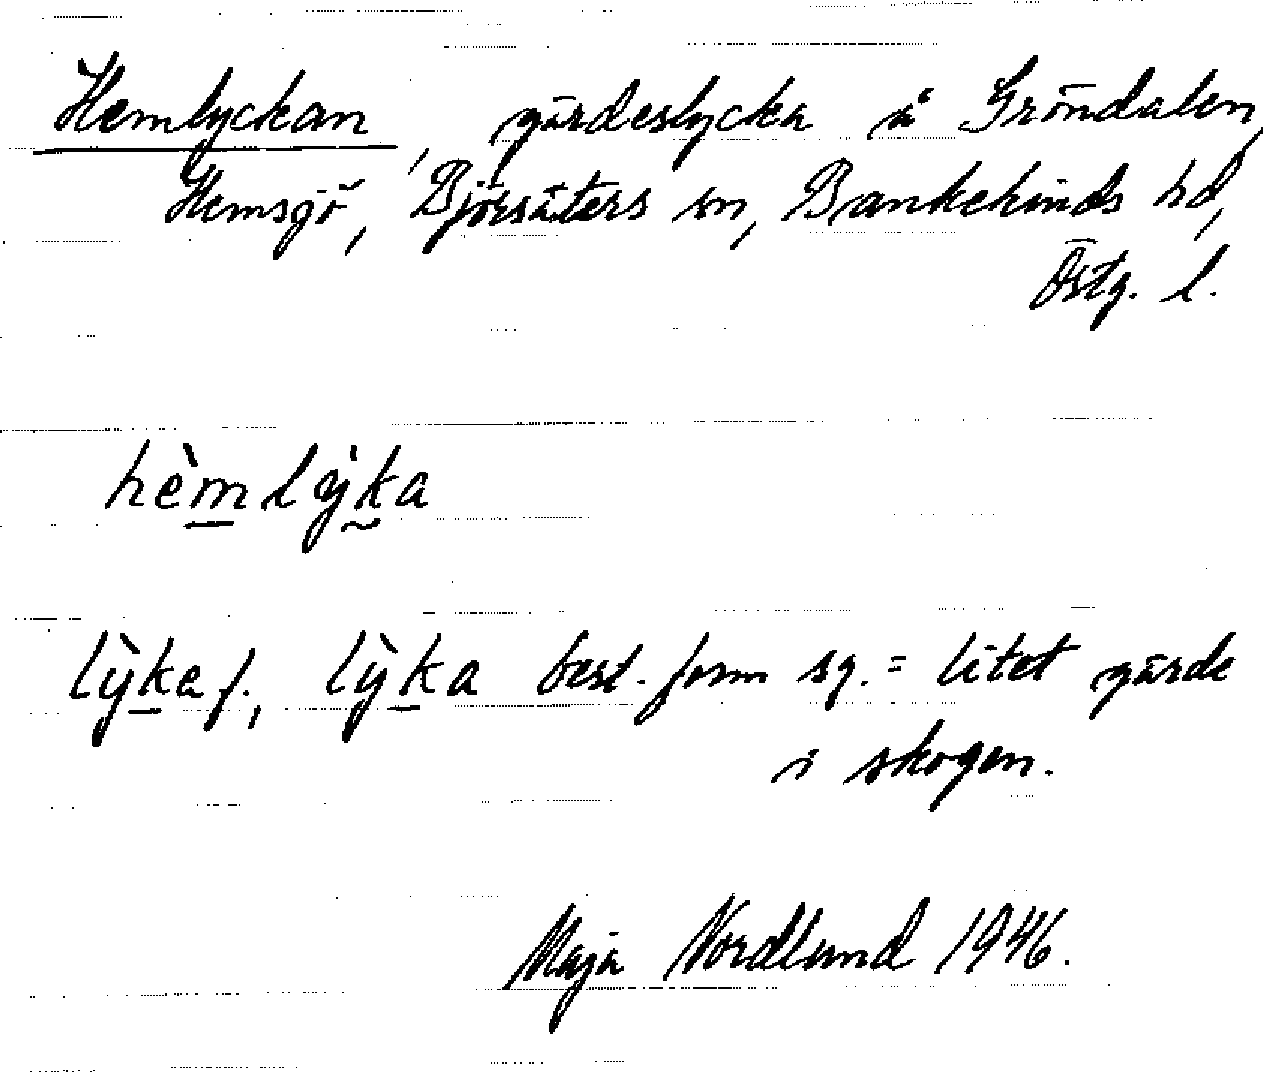 Hemlyckan, gärdeslycka å Gröndalen,
Hemsjö, Björsäters sn, Bankekinds hd,
Östg. l.
hèmlỳka
lỳka f., lỳka best. form sg. = litet gärde
i skogen.
Maja Nordlund 1946.